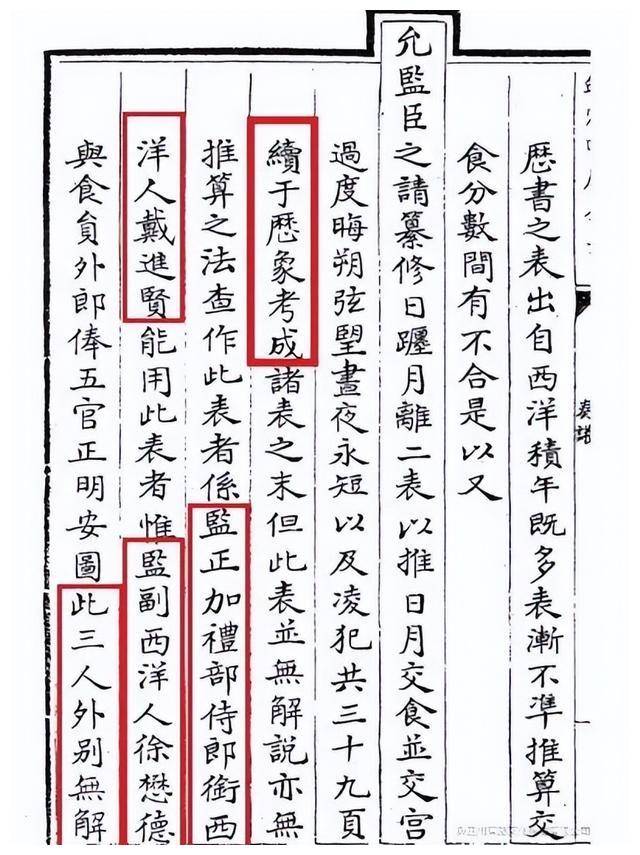 歴書之表出自西洋積年既多表漸不凖推算交
食分數間有不合是以又
允監臣之請纂修日躔月離二表以推日月交食並交宮
過度晦朔弦望晝夜永短以及凌犯共三十九頁
續于歴象考成諸表之末但此表並無解說亦無
推算之法查作此表者係監正加禮部侍郎銜西
洋人戴進賢能用此表者惟監副西洋人徐懋德
與食員外郎俸五官正明安圖此三人外別無解
奏議